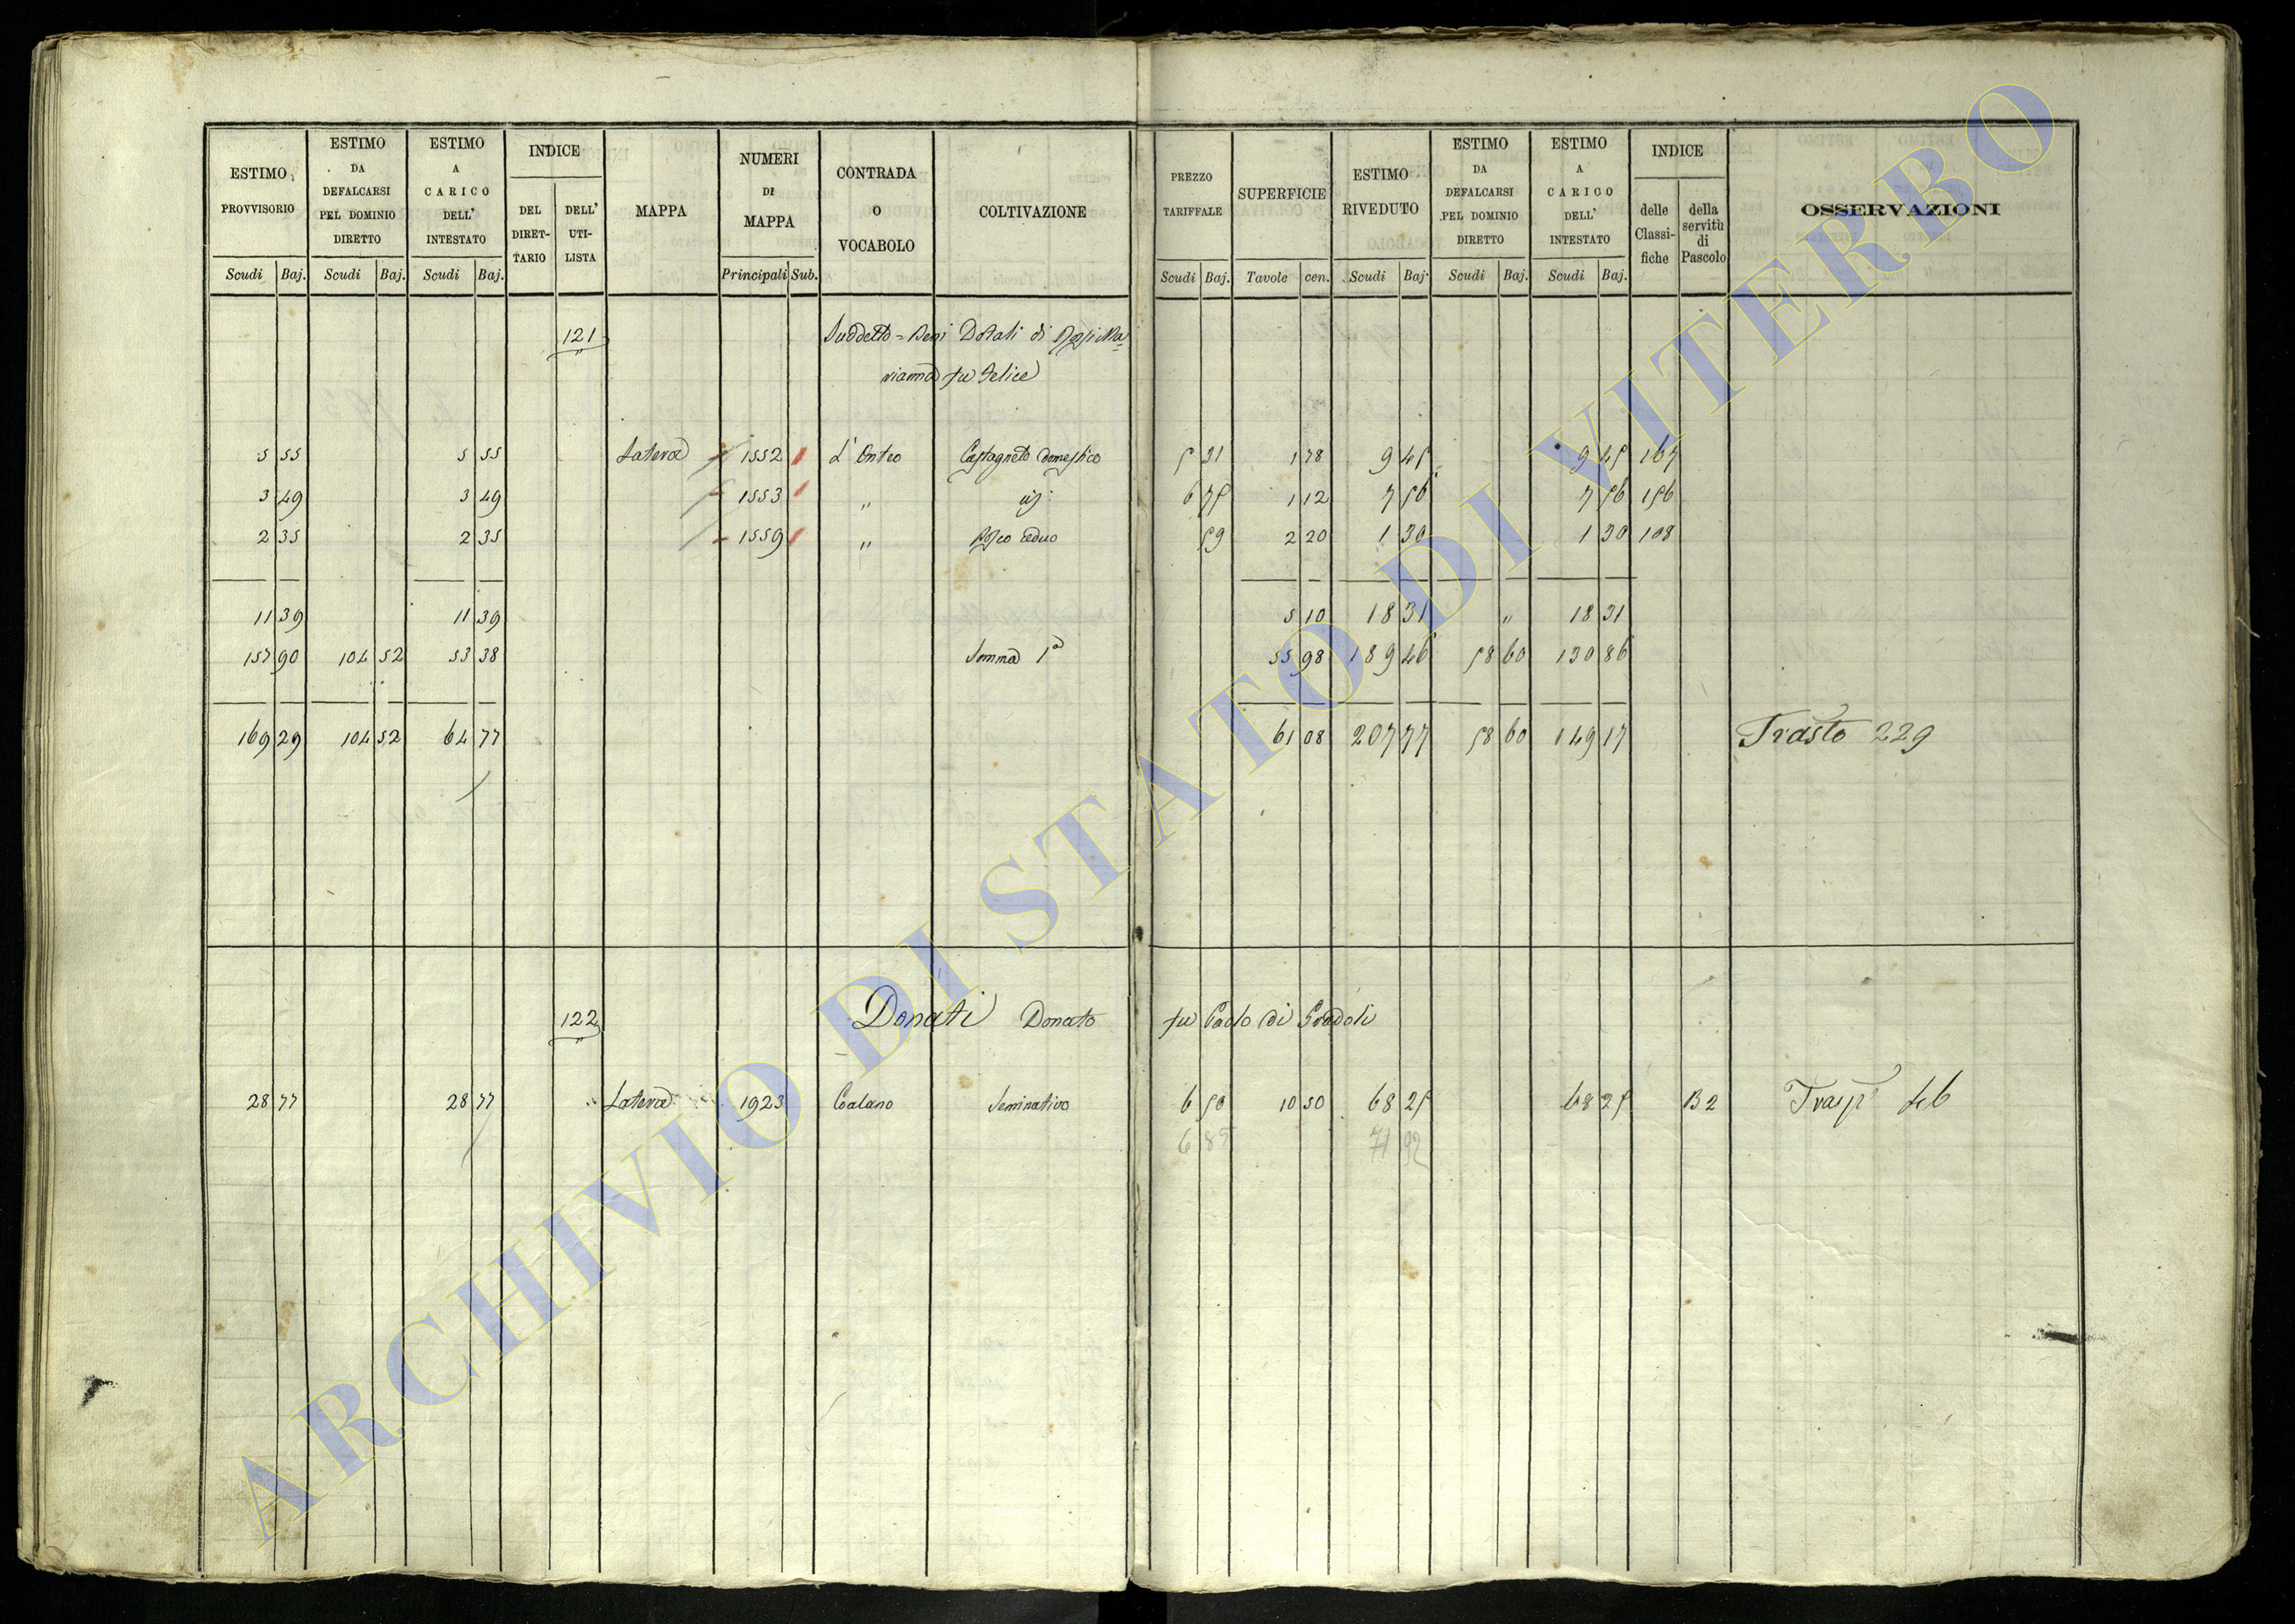 ESTIMO PROVVISORIO
ESTIMO DA DEFALCARSI PEL DOMINIO DIRETTO
ESTIMO A CARICO DELL' INTESTATO
INDICE
DEL DIRET-TARIO
DELL' UTI-LISTA
MAPPA
NUMERI DI MAPPA
CONTRADA O VOCABOLO
COLTIVAZIONE
PREZZO TARIFFALE
SUPERFICIE
ESTIMO RIVEDUTO
ESTIMO DA DEFALCARSI PEL DOMINIO DIRETTO
ESTIMO A CARICO DELL' INTESTATO
INDICE
delle Classi-fiche
della servitù di Pascolo
OSSERVAZIONI
Scudi Baj. Scudi Baj. Scudi Baj. Principali Sub. Scudi Baj. Tavole cen. Scudi Baj. Scudi Baj. Scudi Baj.
121 Suddetto = Beni Dotali di Ma=
rianna fu Felice
5 55 5 55 Latera 1552 L' Onteo Castagneto domestico 5 31 1 78 9 45 9 45 167
3 49 3 49 1553 " 6 75 1 12 7 56 7 56 156
2 35 2 35 1559 " Bosco ceduo 59 2 20 1 30 1 30 108
11 39 11 39 5 10 18 31 " 18 31
157 90 104 52 53 38 Somma 1a 55 98 189 46 58 60 130 86
169 29 104 52 64 77 61 08 207 77 58 60 149 17 Trasto 229
122 Donati Donato fu Paolo di Gradoli
28 77 28 77 " Latera 1923 Coalano Seminativo 6 50 10 50 68 25 68 25 B2
6 85 71 92
ARCHIVIO DI STATO DI VITERBO